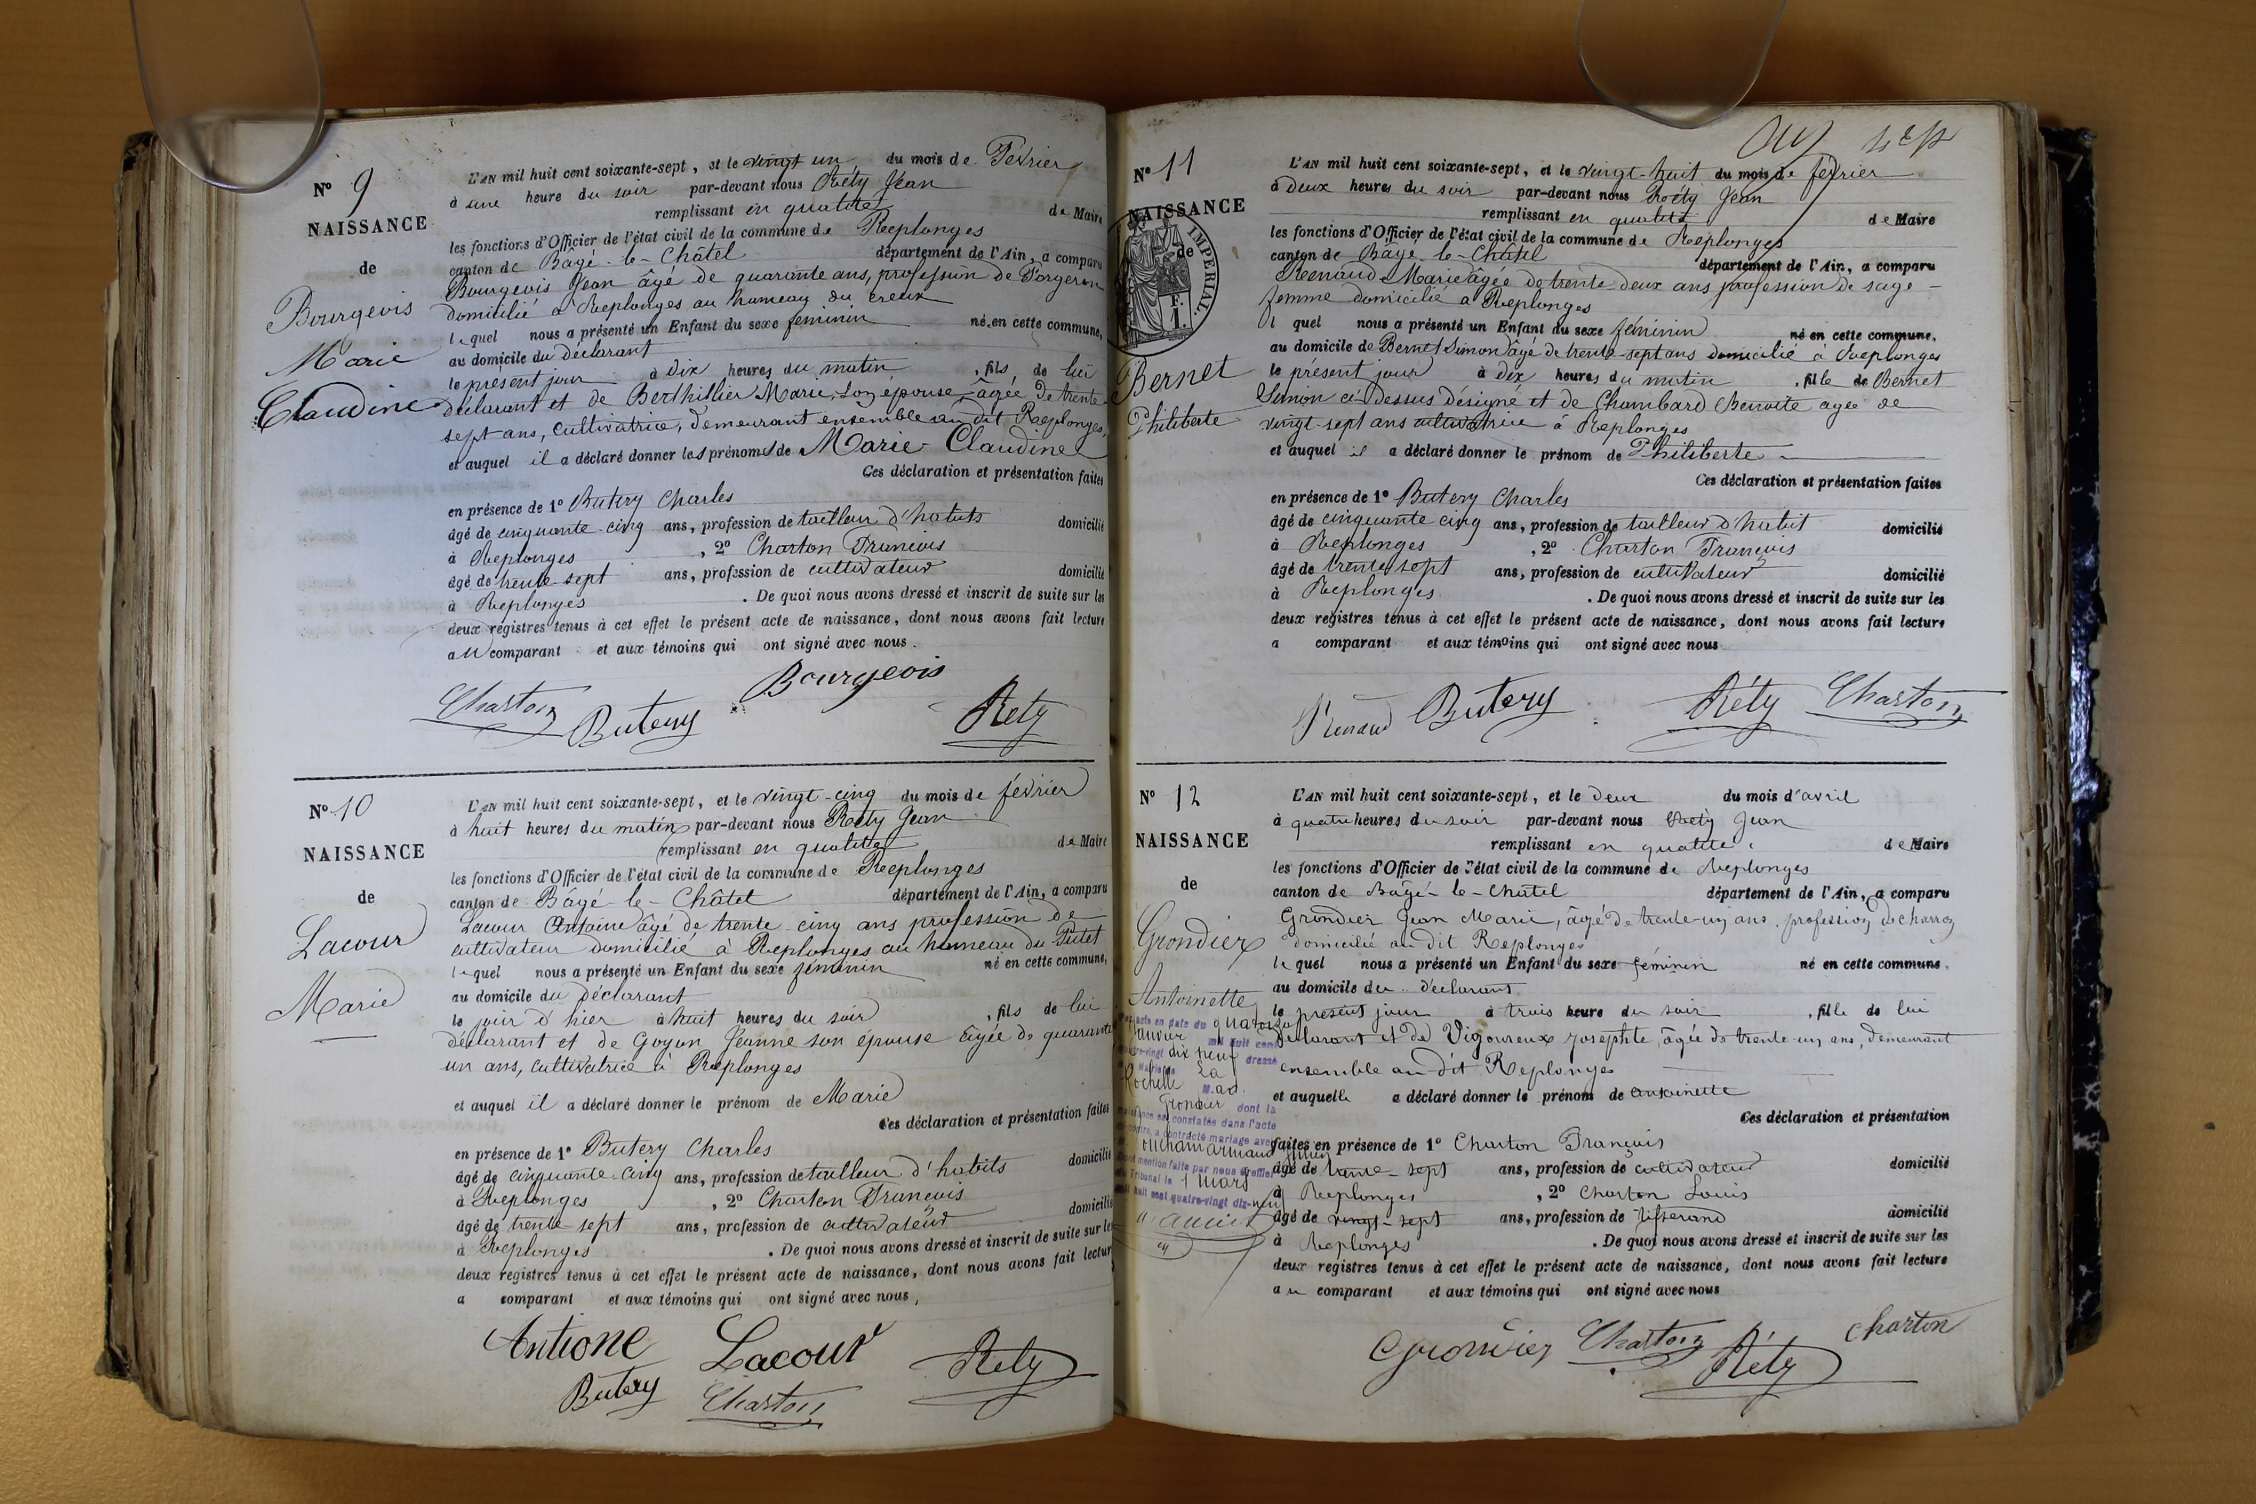 N° 9
NAISSANCE
de
Bourgeois
Marie
Claudine
L'AN mil huit cent soixante-sept, et le vingt un du mois de Février
à une heure du soir par-devant nous Réty Jean
remplissant en qualité de Maire
les fonctions d'Officier de l'état civil de la commune de Replonges
canton de Bagé-le-Châtel département de l'Ain, a comparu
Bourgeois Jean âgé de quarante ans, profession de Forgeron
domicilié à Replonges au hameau du creux
lequel nous a présenté un Enfant du sexe féminin né en cette commune,
au domicile du déclarant
le présent jour à dix heures du matin, fils de lui
déclarant et de Berthillier Marie, son épouse, âgée de trente-
sept ans, cultivatrice, demeurant ensemble au dit Replonges,
et auquel il a déclaré donner les prénoms de Marie Claudine
Ces déclaration et présentation faites
en présence de 1° Butery Charles
âgé de cinquante-cinq ans, profession de tailleur d'habits domicilié
à Replonges, 2° Charton François
âgé de trente-sept ans, profession de cultivateur domicilié
à Replonges. De quoi nous avons dressé et inscrit de suite sur les
deux registres tenus à cet effet le présent acte de naissance, dont nous avons fait lecture
au comparant et aux témoins qui ont signé avec nous.
Bourgeois
Charton Butery Réty
N° 10
NAISSANCE
de
Lacour
Marie
L'AN mil huit cent soixante-sept, et le vingt-cinq du mois de février
à huit heures du matin par-devant nous Réty Jean
remplissant en qualité de Maire
les fonctions d'Officier de l'état civil de la commune de Replonges
canton de Bâgé-le-Châtel département de l'Ain, a comparu
Lacour Antoine âgé de trente-cinq ans profession de
cultivateur domicilié à Replonges au hameau du Putet
lequel nous a présenté un Enfant du sexe féminin né en cette commune,
au domicile du déclarant
le jour d'hier à huit heures du soir, fils de lui
déclarant et de Goyon Jeanne son épouse âgée de quarante
un ans, cultivatrice à Replonges
et auquel il a déclaré donner le prénom de Marie
Ces déclaration et présentation faites
en présence de 1° Butery Charles
âgé de cinquante-cinq ans, profession de tailleur d'habits domicilié
à Replonges, 2° Charton François
âgé de trente-sept ans, profession de cultivateur domicilié
à Replonges. De quoi nous avons dressé et inscrit de suite sur les
deux registres tenus à cet effet le présent acte de naissance, dont nous avons fait lecture
a comparant et aux témoins qui ont signé avec nous,
Antione Lacour Réty
Butery Charton
N° 11
NAISSANCE
de
IMPERIAL.
1 F.
Bernet
Philiberte
L'AN mil huit cent soixante-sept, et le vingt-huit du mois de février
à deux heures du soir par-devant nous Réty Jean
remplissant en qualité de Maire
les fonctions d'Officier de l'état civil de la commune de Replonges
canton de Bâgé-le-Châtel département de l'Ain, a comparu
Renaud Marie âgée de trente-deux ans profession de sage-
femme domicilié à Replonges
l quel nous a présenté un Enfant du sexe féminin né en cette commune.
au domicile de Bernet Simon âgé de trente-sept ans domicilié à Replonges
le présent jour à dix heures du matin, fille de Bernet
Simon ci-dessus désigné et de Chambard Benoite agée de
vingt-sept ans cultivatrice à Replonges
et auquel il a déclaré donner le prénom de Philiberte
Ces déclaration et présentation faites
en présence de 1° Butery Charles
âgé de cinquante cinq ans, profession de tailleur d'habit domicilié
à Replonges, 2° Charton François
âgé de trente sept ans, profession de cultivateur domicilié
à Replonges. De quoi nous avons dressé et inscrit de suite sur les
deux registres tenus à cet effet le présent acte de naissance, dont nous avons fait lecture
a comparant et aux témoins qui ont signé avec nous
Renaud Butery Réty Charton
N° 12
NAISSANCE
de
Grondier
Antoinette
acte en date du quatorze
Janvier mil huit cent
quatre-vingt dix neuf dressé
La
Rochelle
Grondier dont la
naissance est constatée dans l'acte
contre, a contracté mariage avec
mention faite par nous Greffier
Tribunal le 1 mars
mil huit cent quatre-vingt dix-neuf
L'AN mil huit cent soixante-sept, et le deux du mois d'avril
à quatre heures du soir par-devant nous Réty Jean
remplissant en qualité de Maire
les fonctions d'Officier de l'état civil de la commune de Replonges
canton de Bâgé-le-Châtel département de l'Ain, a comparu
Grondier Jean Marie, âgé de trente-un ans, profession de charron
domicilié au dit Replonges
lequel nous a présenté un Enfant du sexe féminin né en cette commune.
au domicile du déclarant
le présent jour à trois heure du soir, fille de lui
déclarant et de Vigoureux Josephte, âgée de trente-un ans, demeurant
ensemble au dit Replonges
et auquelle a déclaré donner le prénom de antoinette
Ces déclaration et présentation
faites en présence de 1° Charton François
âgé de trente-sept ans, profession de cultivateur domicilié
à Replonges, 2° Charton Louis
âgé de vingt-sept ans, profession de tisserand domicilié
à Replonges. De quoi nous avons dressé et inscrit de suite sur les
deux registres tenus à cet effet le présent acte de naissance, dont nous avons fait lecture
au comparant et aux témoins qui ont signé avec nous
Grondier Charton Réty Charton